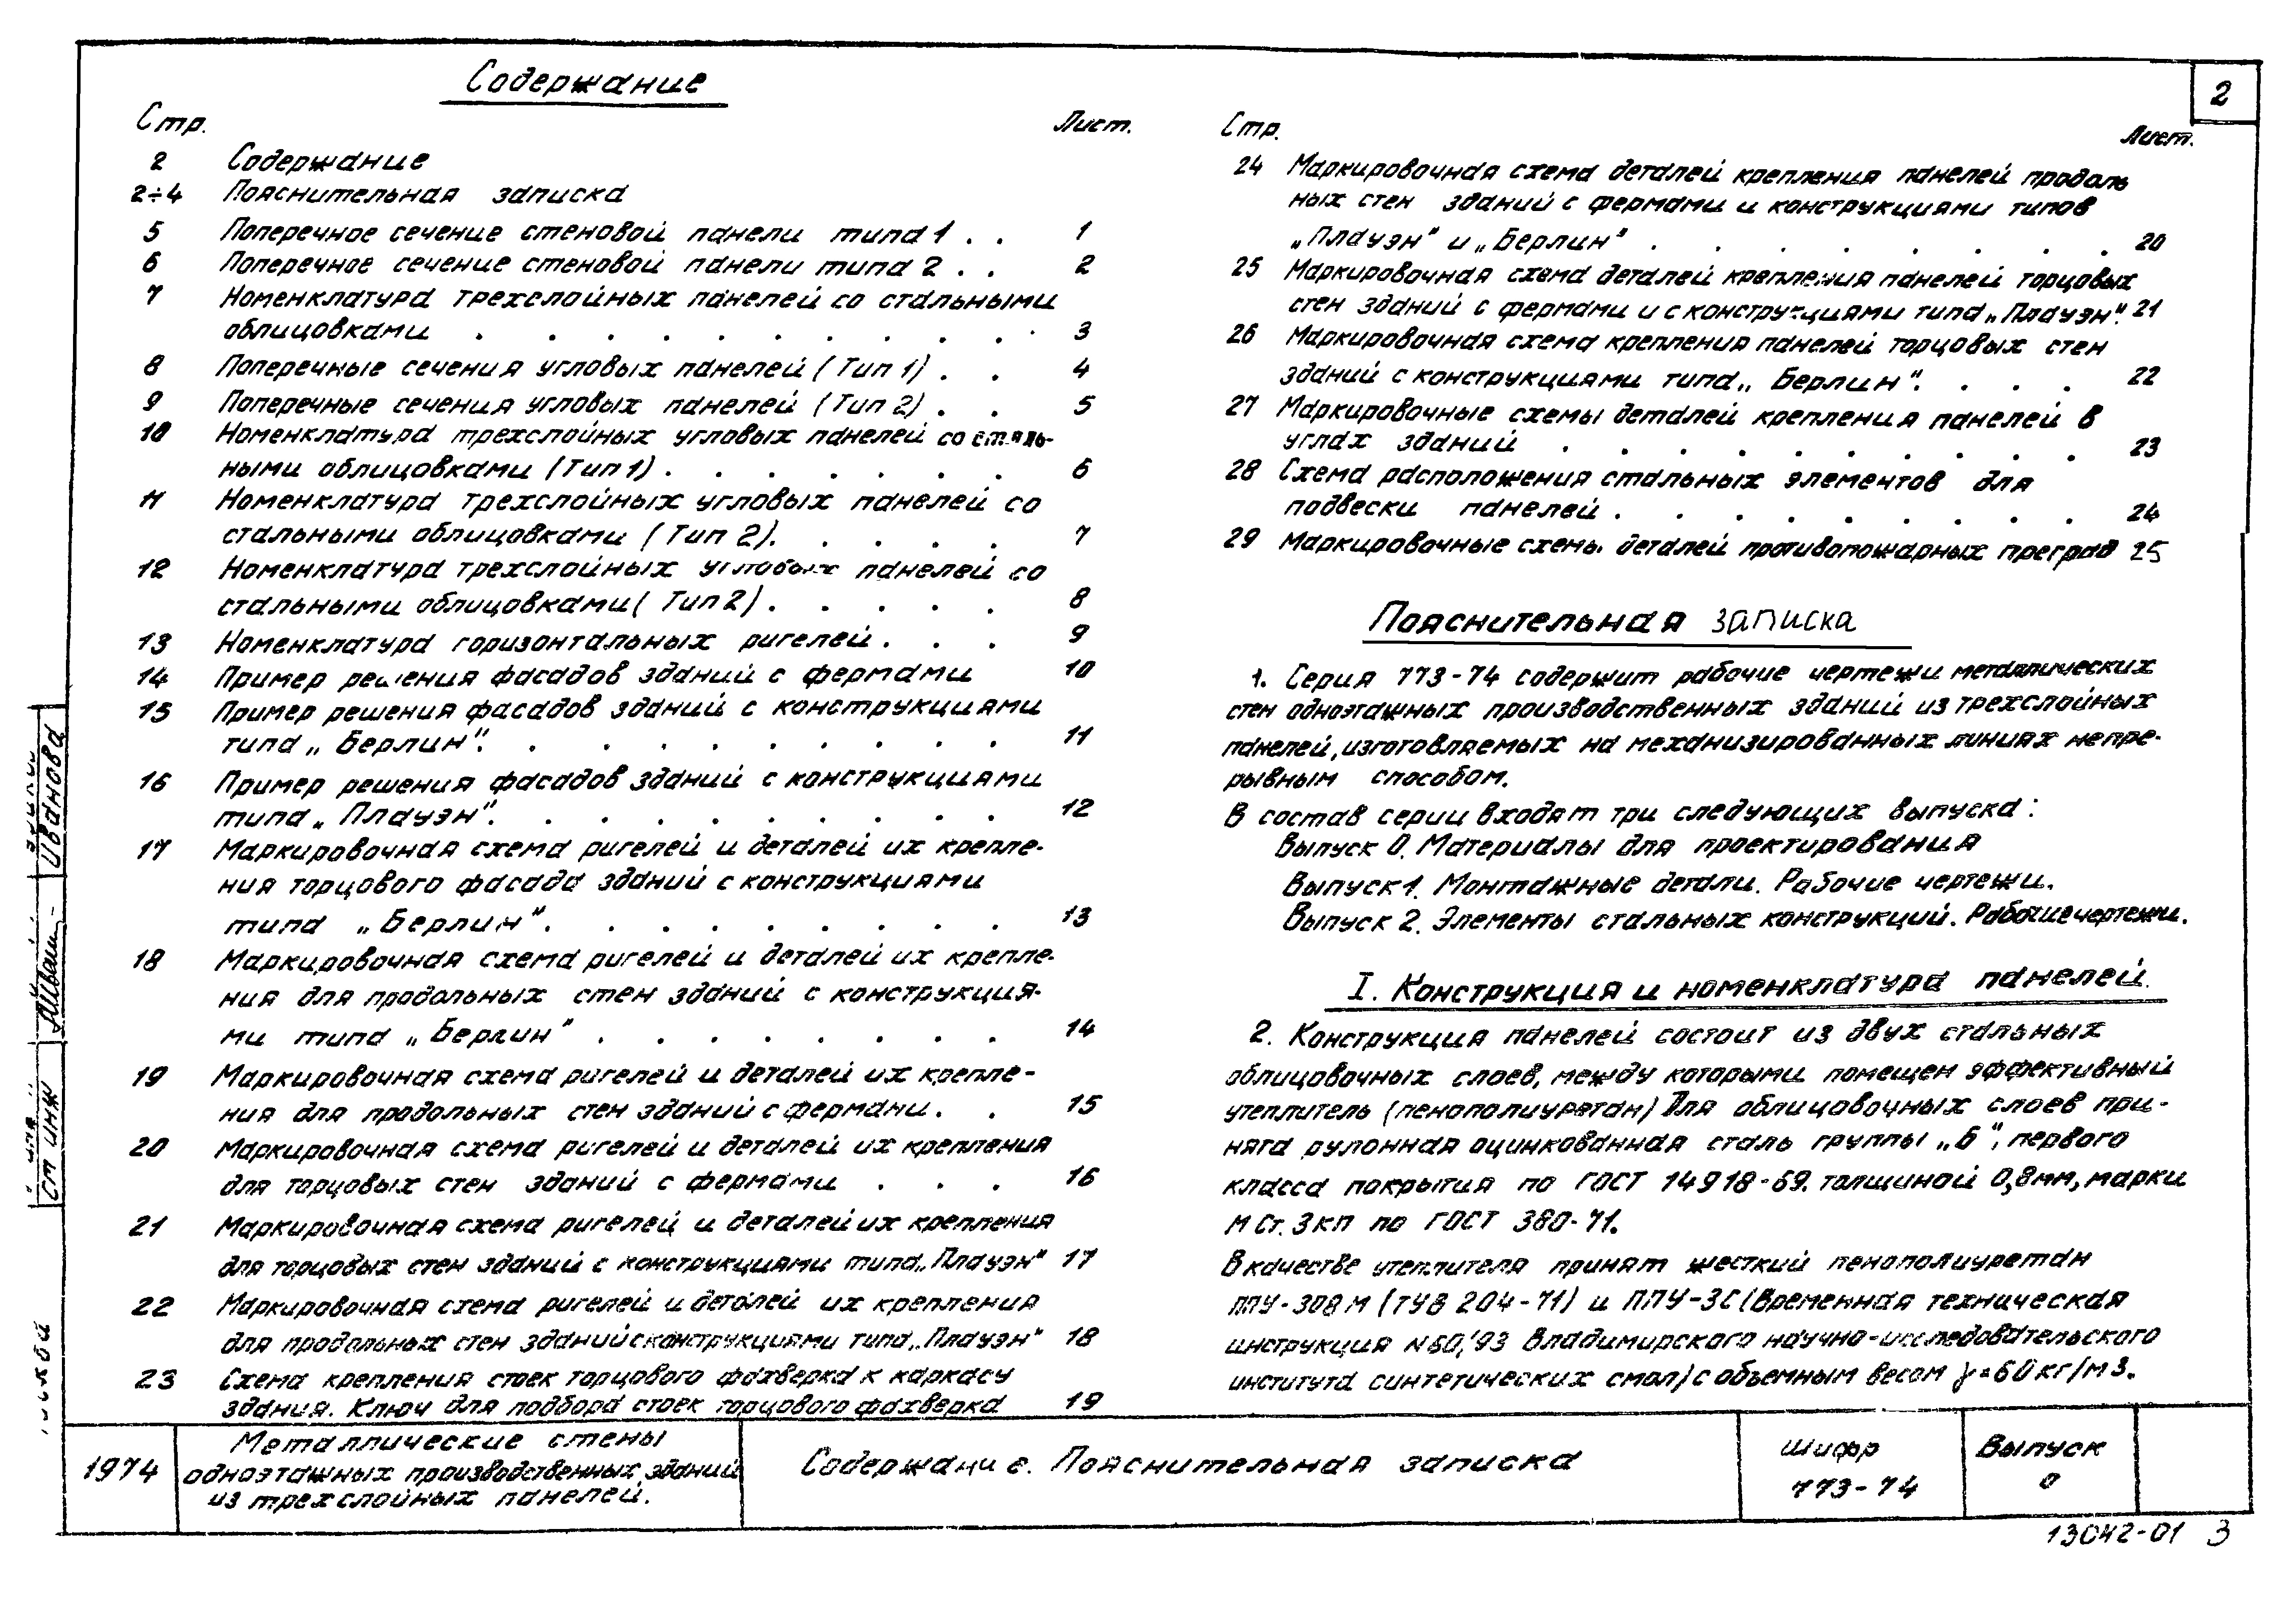 2
Содержание
Стр. Лист.
2 Содержание
2÷4 Пояснительная записка
5 Поперечное сечение стеновой панели типа 1 . . 1
6 Поперечное сечение стеновой панели типа 2 . . 2
7 Номенклатура трехслойных панелей со стальными
облицовками . . . . . . . . . . . 3
8 Поперечные сечения угловых панелей (Тип 1) . . 4
9 Поперечные сечения угловых панелей (Тип 2) . . 5
10 Номенклатура трехслойных угловых панелей со сталь-
ными облицовками (Тип 1) . . . . . . . 6
11 Номенклатура трехслойных угловых панелей со
стальными облицовками (Тип 2). . . . . 7
12 Номенклатура трехслойных угловых панелей со
стальными облицовками (Тип 2) . . . . . 8
13 Номенклатура горизонтальных ригелей . . . 9
14 Пример решения фасадов зданий с фермами 10
15 Пример решения фасадов зданий с конструкциями
типа „Берлин". . . . . . . . . . 11
16 Пример решения фасадов зданий с конструкциями
типа „Плауэн". . . . . . . . . . 12
17 Маркировочная схема ригелей и деталей их крепле-
ния торцового фасада зданий с конструкциями
типа „Берлин". . . . . . . . . 13
18 Маркировочная схема ригелей и деталей их крепле-
ния для продольных стен зданий с конструкция-
ми типа „Берлин" . . . . . . . . 14
19 Маркировочная схема ригелей и деталей их крепле-
ния для продольных стен зданий с фермани. . 15
20 Маркировочная схема ригелей и деталей их крепления
для торцовых стен зданий с фермами . . . 16
21 Маркировочная схема ригелей и деталей их крепления
для торцовых стен зданий с конструкциями типа „Плауэн" 17
22 Маркировочная схема ригелей и деталей их крепления
для продольных стен зданий с конструкциями типа „Плауэн" 18
23 Схема крепления стоек торцового фахверка к каркасу
здания. Ключ для подбора стоек торцового фахверка 19
Стр. Лист.
24 Маркировочная схема деталей крепления панелей продоль
ных стен зданий с фермами и конструкциями типов
„Плауэн" и „Берлин" . . . . . . . . . 20
25 Маркировочная схема деталей крепления панелей торцовых
стен зданий с фермами и с конструкциями типа „Плауэн". 21
26 Маркировочная схема крепления панелей торцовых стен
зданий с конструкциями типа „Берлин". . . . 22
27 Маркировочные схемы деталей крепления панелей в
углах зданий . . . . . . . . . . 23
28 Схема расположения стальных элементов для
подвески панелей . . . . . . . . . 24
29 Маркировочные схемы деталей противопожарных преград 25
Пояснительная записка
1. Серия 773-74 содержит рабочие чертежи металлических
стен одноэтажных производственных зданий из трехслойных
панелей, изготовляемых на механизированных линиях непре-
рывным способом.
В состав серии входят три следующих выпуска:
Выпуск 0. Материалы для проектирования
Выпуск 1. Монтажные детали. Рабочие чертежи.
Выпуск 2. Элементы стальных конструкций. Рабочие чертежи.
I. Конструкция и номенклатура панелей.
2. Конструкция панелей состоит из двух стальных
облицовочных слоев, между которыми помещен эффективный
утеплитель (пенополиуретан) Для облицовочных слоев при-
нята рулонная оцинкованная сталь группы „Б", первого
класса покрытия по ГОСТ 14918-69. толщиной 0,8мм, марки
М Ст. 3 кп по ГОСТ 380-71.
В качестве утеплителя принят жесткий пенополиуретан
ППУ-308 М (ТУВ 204-71) и ППУ-3С (Временная техническая
инструкция N 60, '93 Владимирского научно-исследовательского
института синтетических смол) с объемным весом γ=60 кг/м3.
1974
Металлические стены
одноэтажных производственных зданий
из трехслойных панелей.
Содержание. Пояснительная записка
Шифр
773-74
Выпуск
0
13042-01 3
Ст инж
Иванова